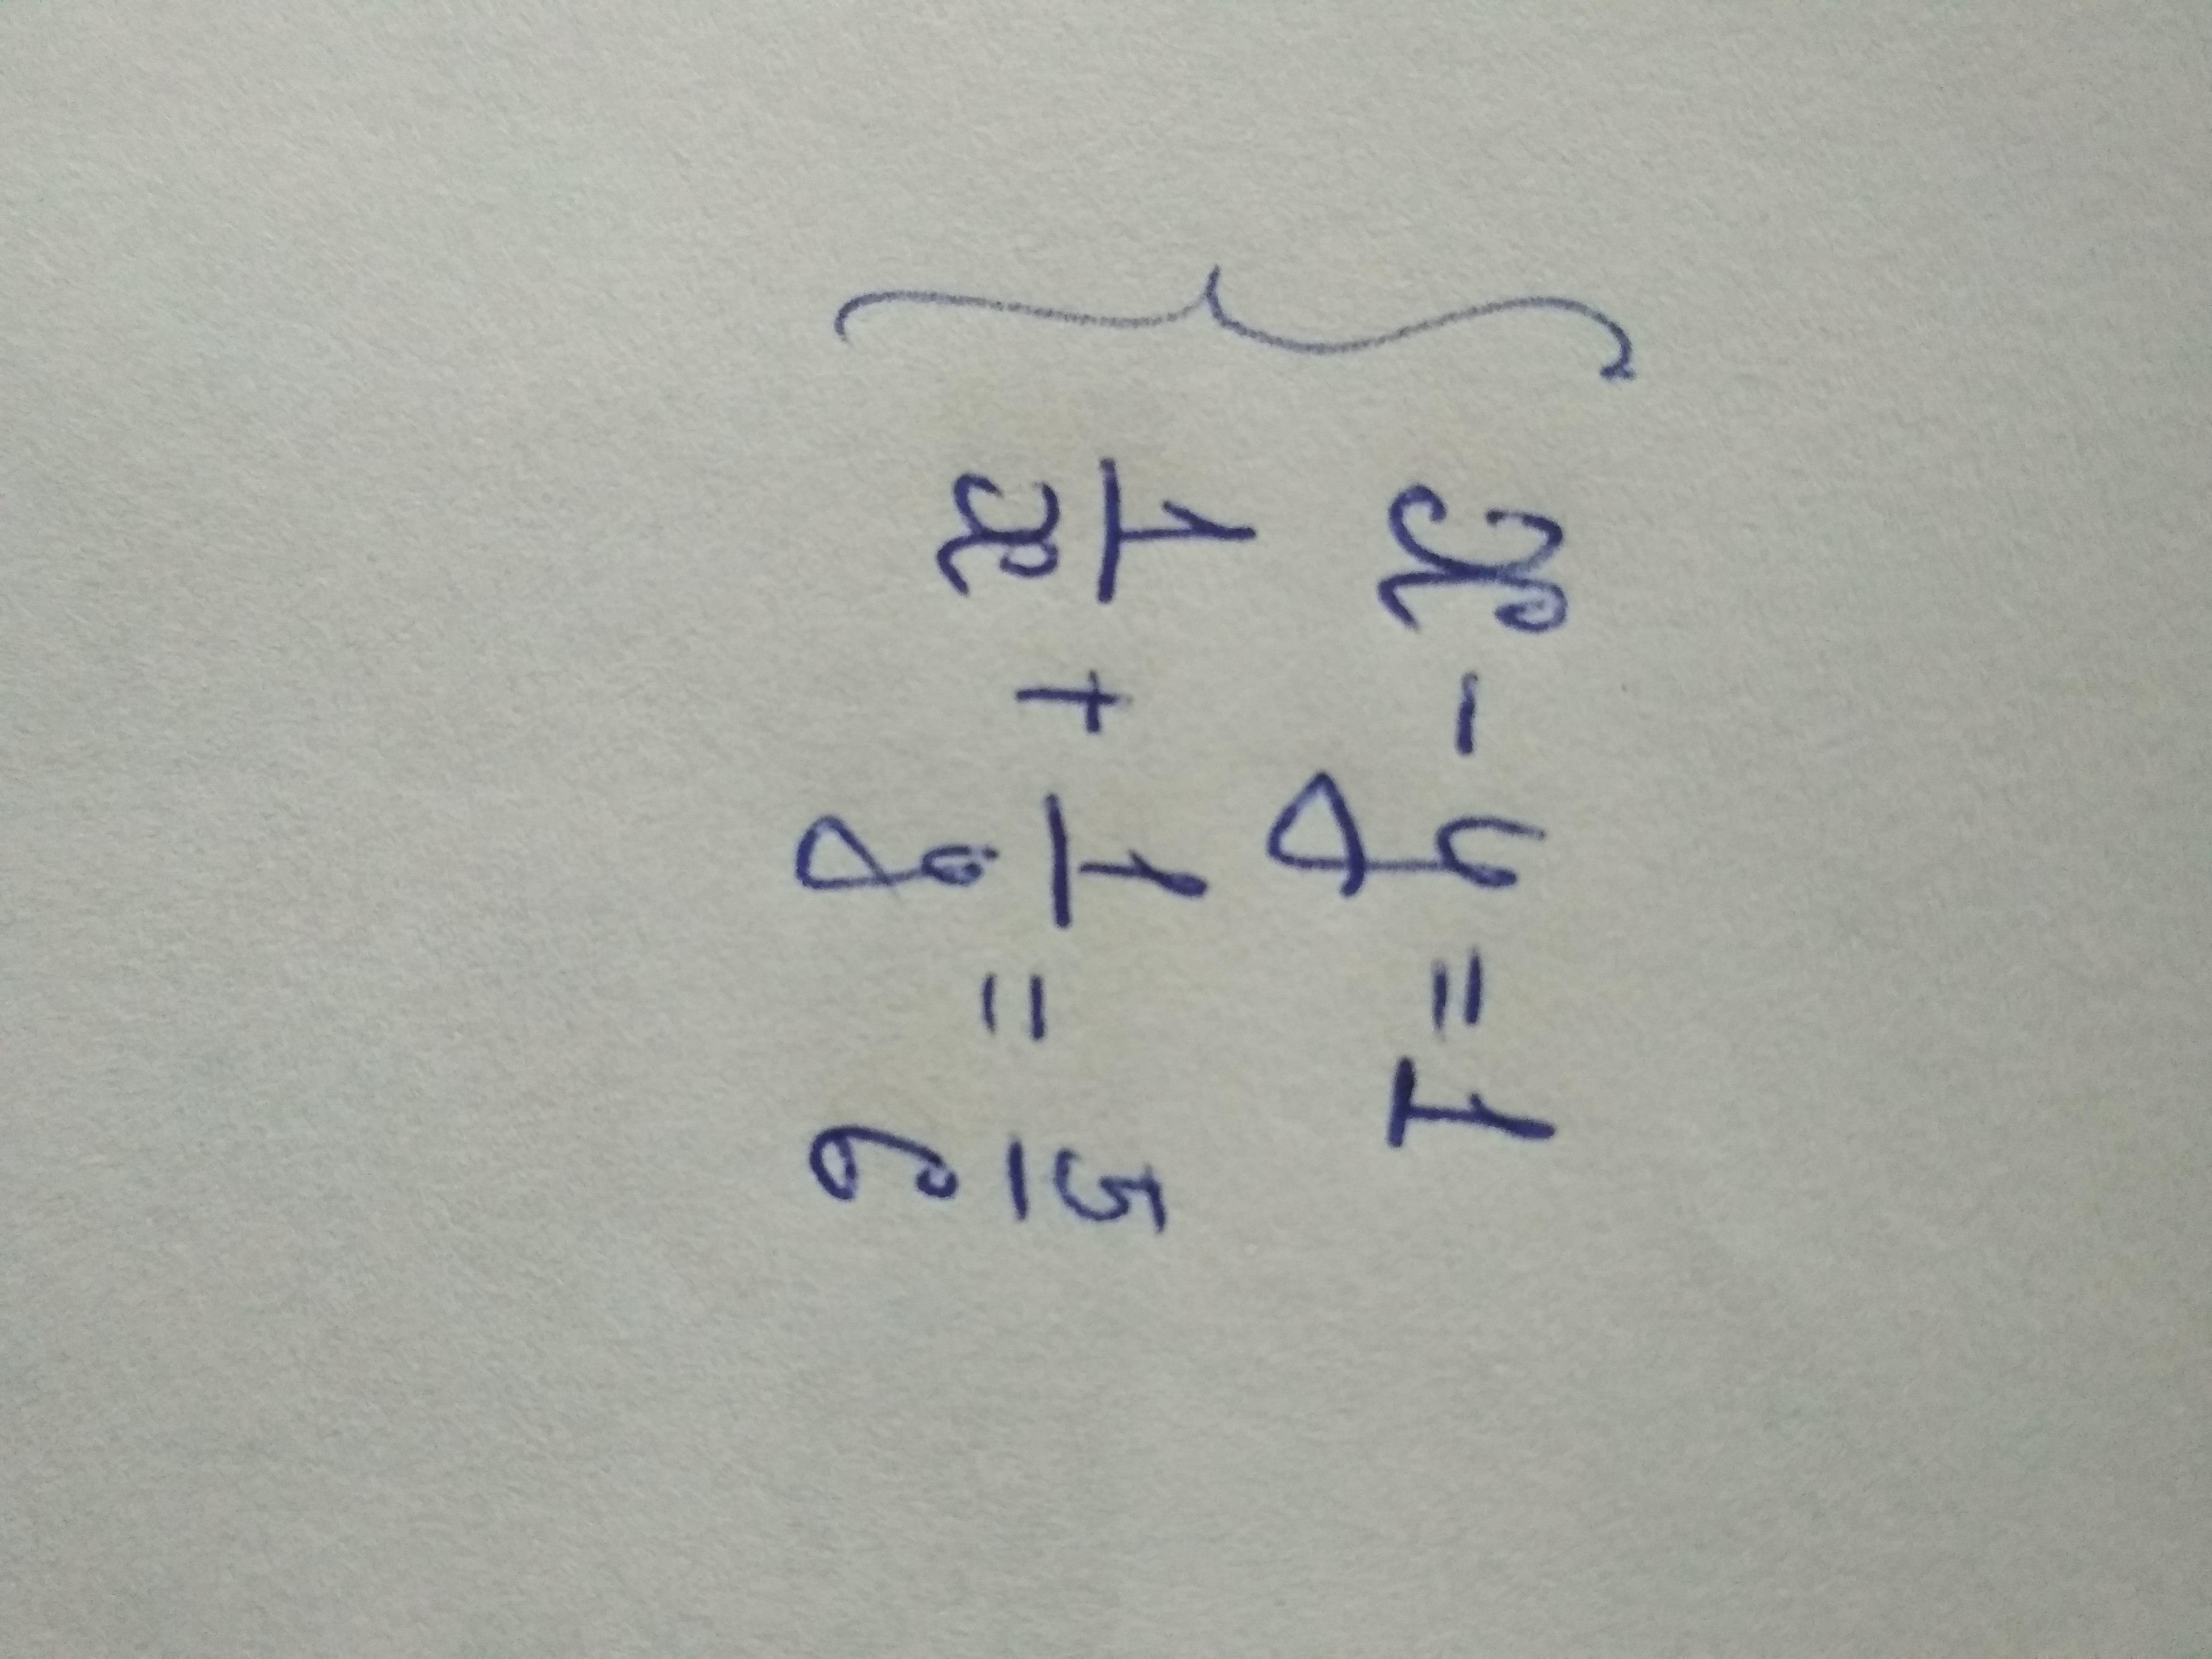 { x - y = 1
1/x + 1/y = 5/6